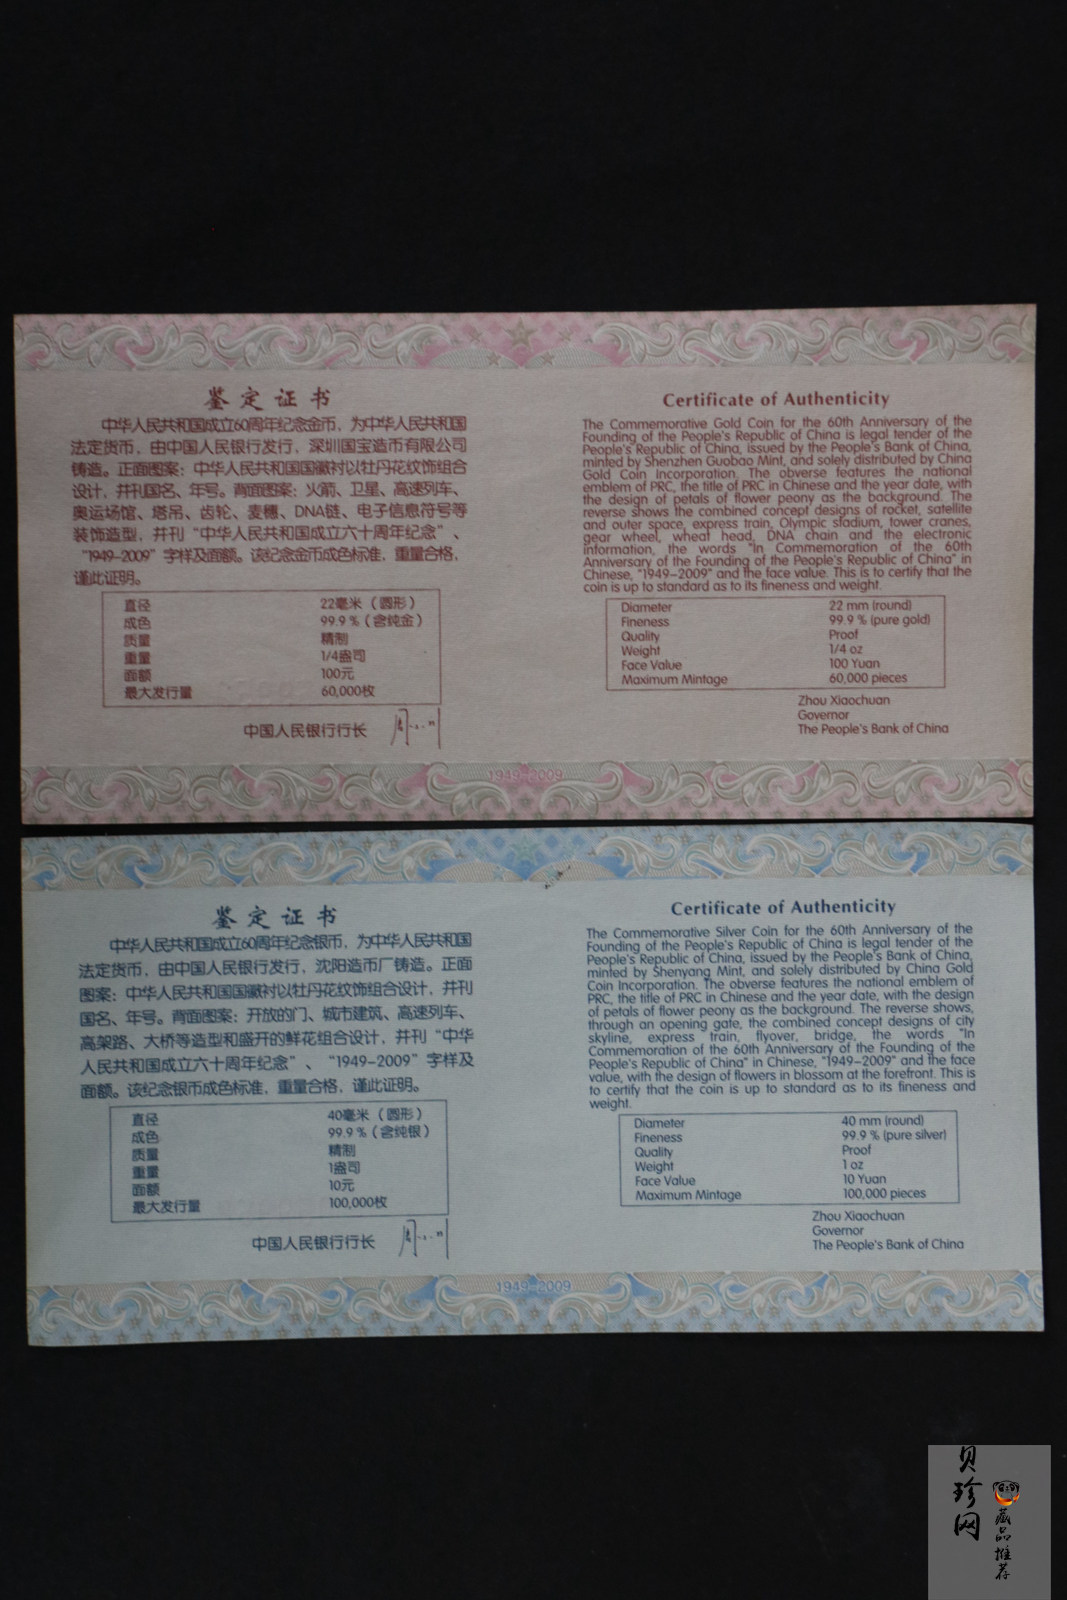 鉴定证书
中华人民共和国成立60周年纪念金币，为中华人民共和国
法定货币，由中国人民银行发行，深圳国宝造币有限公司
铸造。正面图案：中华人民共和国国徽衬以牡丹花纹饰组合
设计，并刊国名、年号。背面图案：火箭、卫星、高速列车、
奥运场馆、塔吊、齿轮、麦穗、DNA链、电子信息符号等
装饰造型，并刊“中华人民共和国成立六十周年纪念”、
“1949-2009”字样及面额。该纪念金币成色标准，重量合格，
谨此证明。
直径 22毫米（圆形）
成色 99.9％（含纯金）
质量 精制
重量 1/4盎司
面额 100元
最大发行量 60,000枚
中国人民银行行长
Certificate of Authenticity
The Commemorative Gold Coin for the 60th Anniversary of the
Founding of the People's Republic of China is legal tender of the
People's Republic of China, issued by the People's Bank of China,
minted by Shenzhen Guobao Mint, and solely distributed by China
Gold Coin Incorporation. The obverse features the national
emblem of PRC, the title of PRC in Chinese and the year date, with
the design of petals of flower peony as the background. The
reverse shows the combined concept designs of rocket, satellite
and outer space, express train, Olympic stadium, tower cranes,
gear wheel, wheat head, DNA chain and the electronic
information, the words "In Commemoration of the 60th
Anniversary of the Founding of the People's Republic of China" in
Chinese, "1949-2009" and the face value. This is to certify that the
coin is up to standard as to its fineness and weight.
Diameter 22 mm (round)
Fineness 99.9 % (pure gold)
Quality Proof
Weight 1/4 oz
Face Value 100 Yuan
Maximum Mintage 60,000 pieces
Zhou Xiaochuan
Governor
The People's Bank of China
1949-2009
鉴定证书
中华人民共和国成立60周年纪念银币，为中华人民共和国
法定货币，由中国人民银行发行，沈阳造币厂铸造。正面
图案：中华人民共和国国徽衬以牡丹花纹饰组合设计，并刊
国名、年号。背面图案：开放的门、城市建筑、高速列车、
高架路、大桥等造型和盛开的鲜花组合设计，并刊“中华
人民共和国成立六十周年纪念”、“1949-2009”字样及
面额。该纪念银币成色标准，重量合格，谨此证明。
直径 40毫米（圆形）
成色 99.9％（含纯银）
质量 精制
重量 1盎司
面额 10元
最大发行量 100,000枚
中国人民银行行长
Certificate of Authenticity
The Commemorative Silver Coin for the 60th Anniversary of the
Founding of the People's Republic of China is legal tender of the
People's Republic of China, issued by the People's Bank of China,
minted by Shenyang Mint, and solely distributed by China Gold
Coin Incorporation. The obverse features the national emblem of
PRC, the title of PRC in Chinese and the year date, with the design
of petals of flower peony as the background. The reverse shows,
through an opening gate, the combined concept designs of city
skyline, express train, flyover, bridge, the words "In
Commemoration of the 60th Anniversary of the Founding of the
People's Republic of China" in Chinese, "1949-2009" and the face
value, with the design of flowers in blossom at the forefront. This is
to certify that the coin is up to standard as to its fineness and
weight.
Diameter 40 mm (round)
Fineness 99.9 % (pure silver)
Quality Proof
Weight 1 oz
Face Value 10 Yuan
Maximum Mintage 100,000 pieces
Zhou Xiaochuan
Governor
The People's Bank of China
1949-2009
贝珍网
藏品推荐